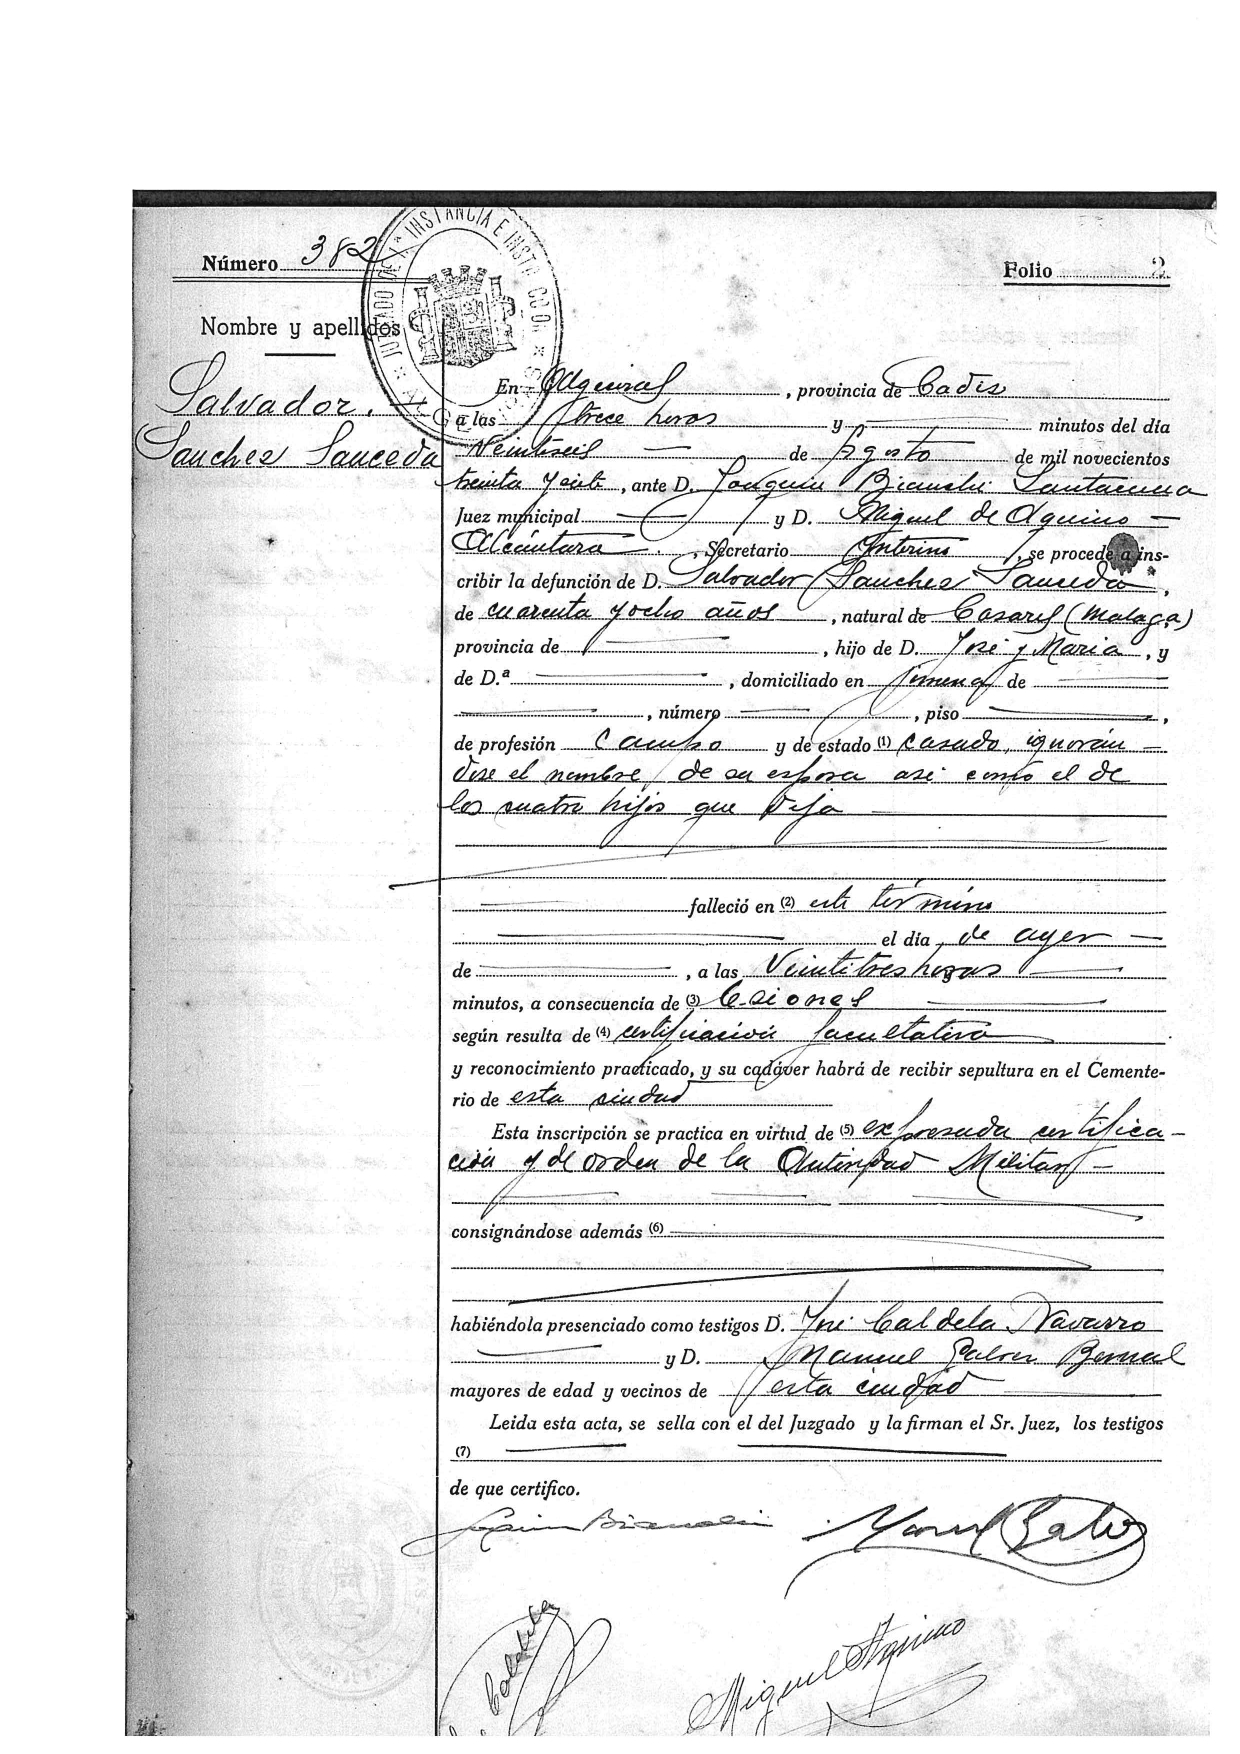 Número 382
Folio 2
JUZGADO DE 1ª INSTANCIA E INSTR
Nombre y apellidos
Salvador
Sanchez Sauceda
En Algeciras, provincia de Cadiz
a las trece horas y minutos del día
Veintiseis de Agosto de mil novecientos
treinta y seis, ante D. Joaquin Bianchi Santacana
Juez municipal y D. Miguel de Aquino
Alcántara, Secretario Interino, se procede a ins-
cribir la defunción de D. Salvador Sanchez Sauceda,
de cuarenta y ocho años, natural de Casares (Malaga)
provincia de, hijo de D. José y Maria, y
de D.ª, domiciliado en Jimena de
, número, piso,
de profesión Campo y de estado (1) casado, ignorán-
dose el nombre de su esposa asi como el de
los cuatro hijos que deja
falleció en (2) este término
el día de ayer
de, a las Veintitres horas
minutos, a consecuencia de (3) Lesiones
según resulta de (4) certificación facultativa
y reconocimiento practicado, y su cadáver habrá de recibir sepultura en el Cemente-
rio de esta ciudad
Esta inscripción se practica en virtud de (5) expresada certifica-
ción y de orden de la Autoridad Militar
consignándose además (6)
habiéndola presenciado como testigos D. José Caldela Navarro
y D. Manuel Galvez Bernal
mayores de edad y vecinos de esta ciudad
Leida esta acta, se sella con el del Juzgado y la firman el Sr. Juez, los testigos
(7)
de que certifico.
Joaquin Bianchi
Manuel Galvez
Caldela
Miguel Aquino